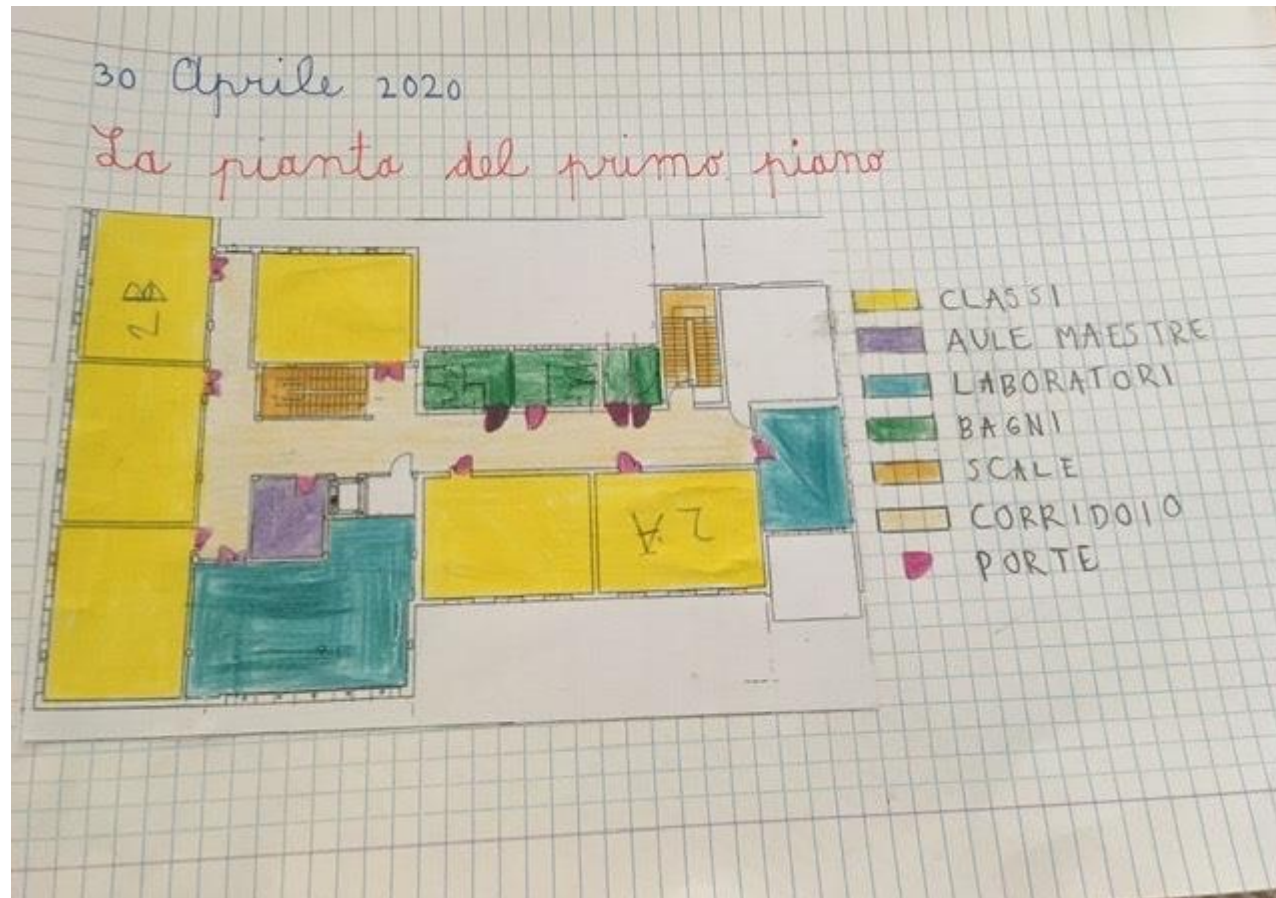 30 Aprile 2020
La pianta del primo piano
2B
2A
CLASSI
AULE MAESTRE
LABORATORI
BAGNI
SCALE
CORRIDOIO
PORTE